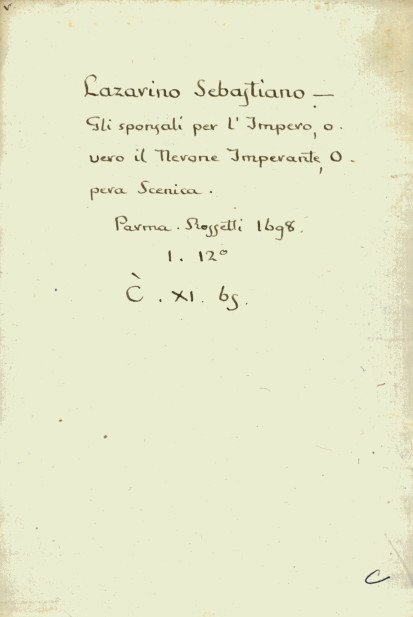 v.
Lazarino Sebastiano —
Gli sponsali per l' Impero, o.
vero il Nerone Imperante, O.
pera Scenica.
Parma. Rossetti 1698.
1. 12°
C̀. XI. 65.
C